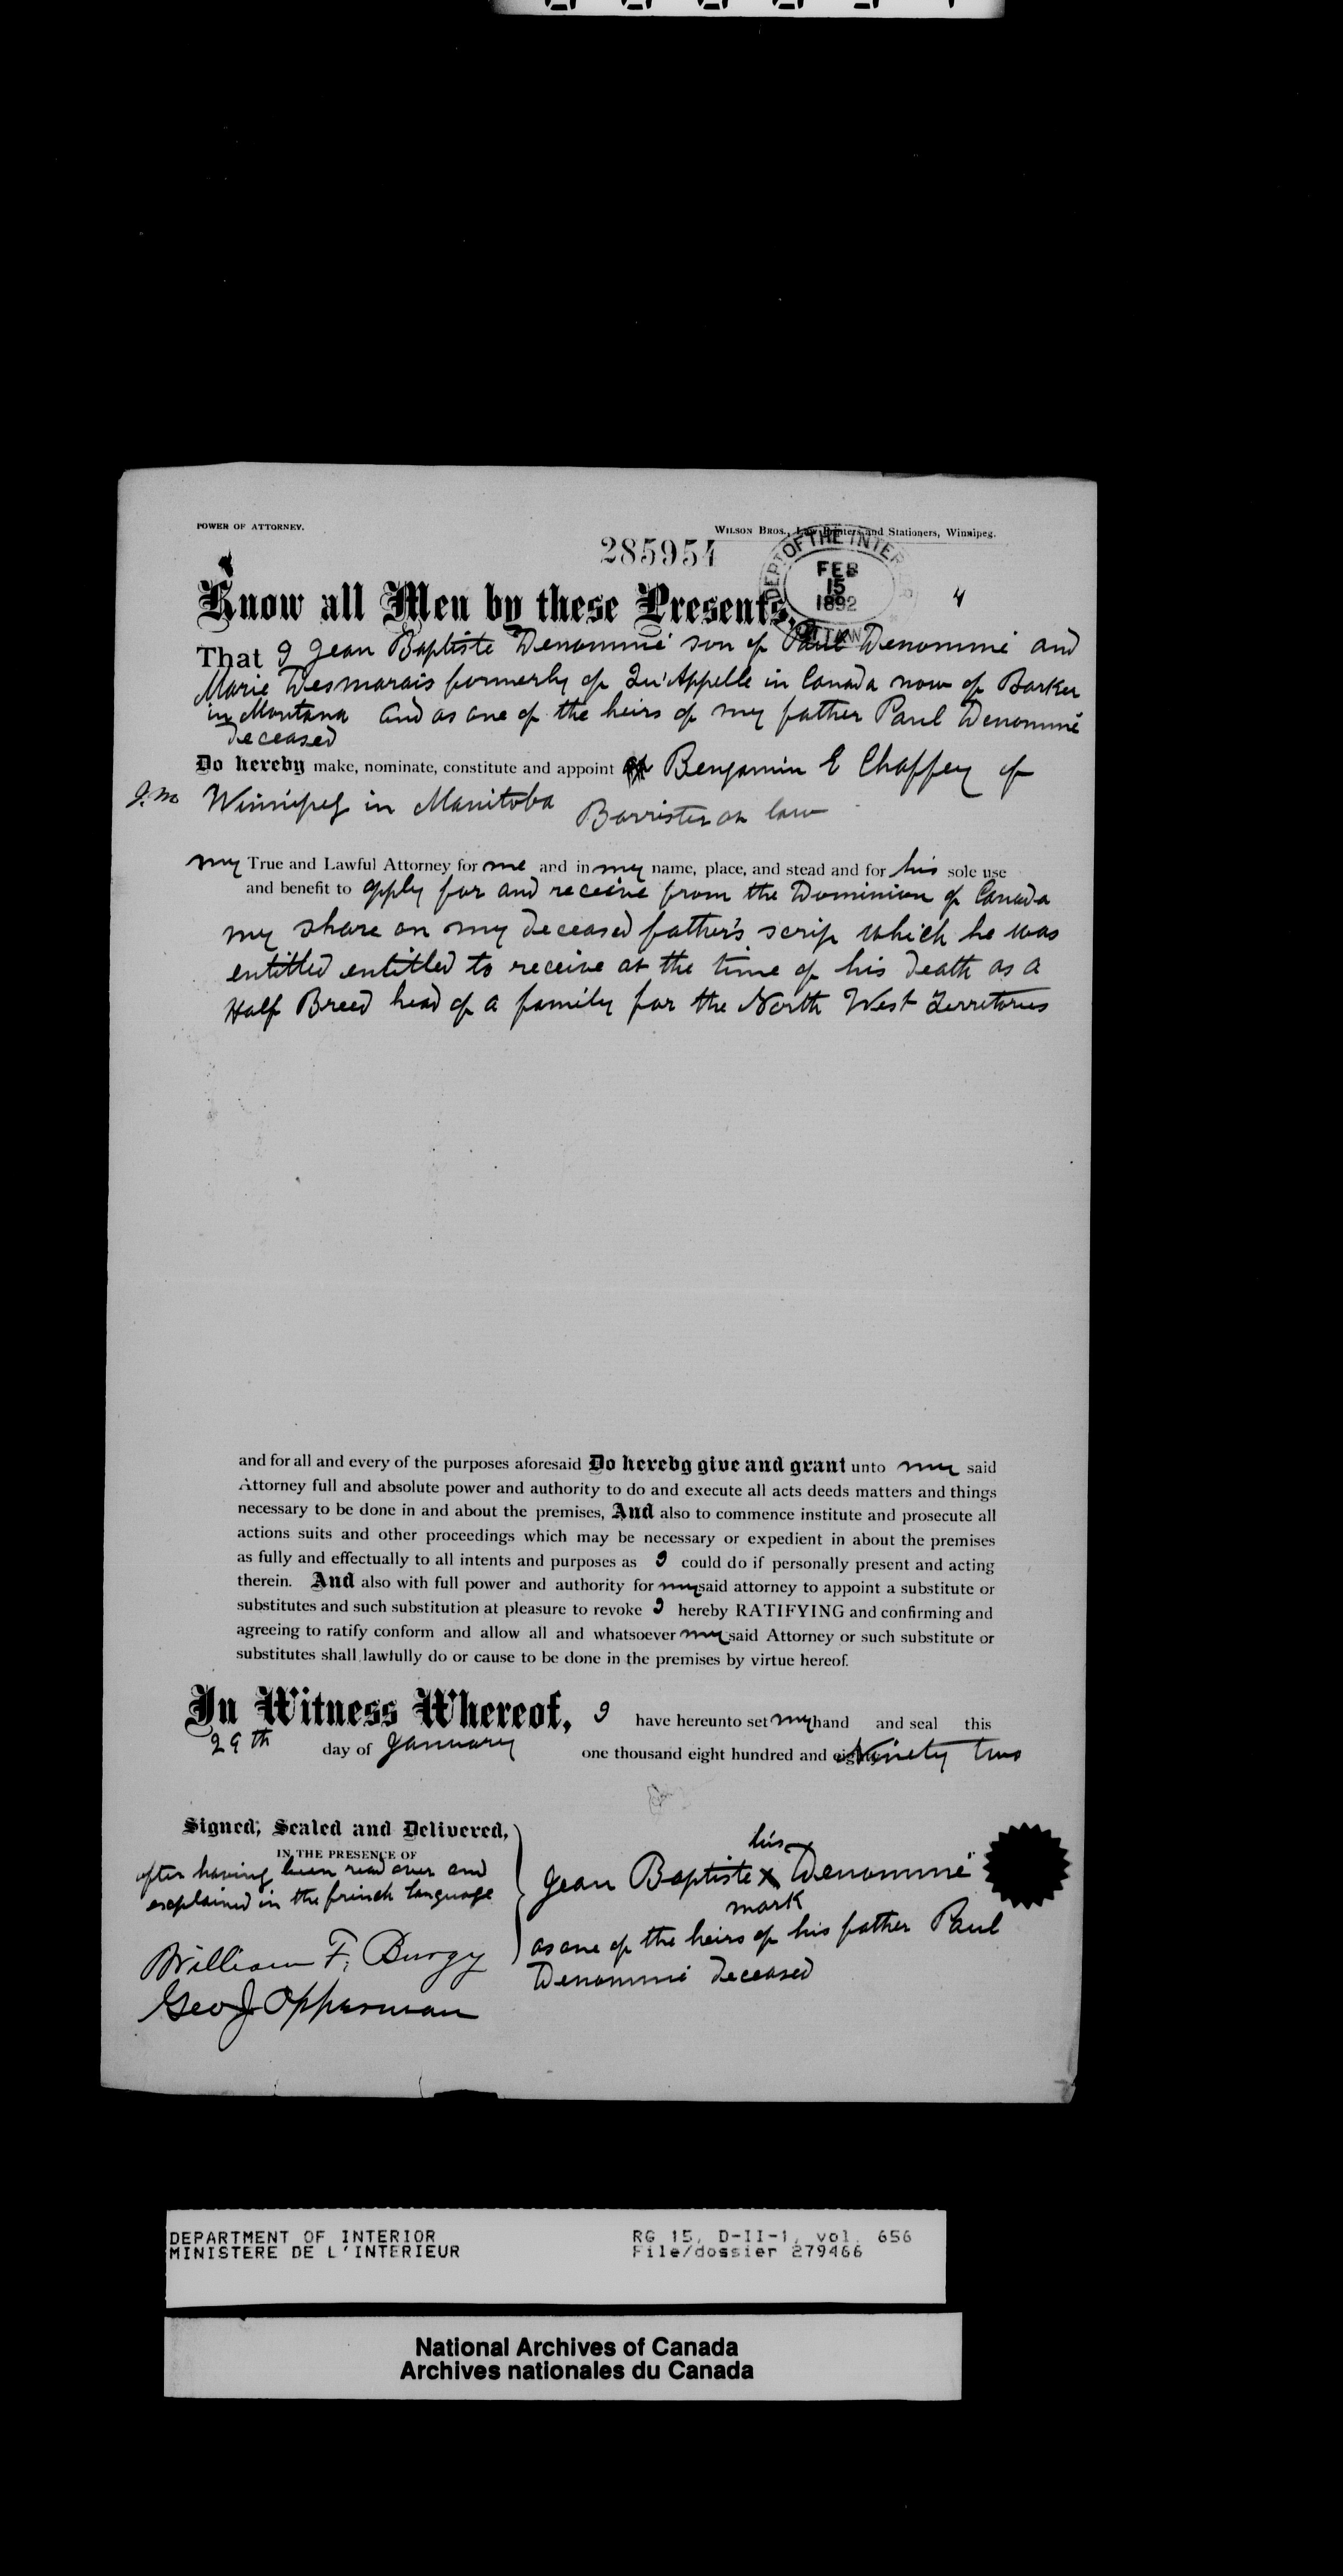 POWER OF ATTORNEY.
WILSON BROS., Law Printers and Stationers, Winnipeg.
285954
DEPT OF THE INTERIOR
FEB
15
1892
OTTAWA
4
Know all Men by these Presents,
That I Jean Baptiste Denommé son of Paul Denommé and
Marie Desmarais formerly of Qu'Appelle in Canada now of Barker
in Montana and as one of the heirs of my father Paul Denommé
deceased
Do hereby make, nominate, constitute and appoint Benjamin E Chaffey of
Winnipeg in Manitoba Barrister at law
my True and Lawful Attorney for me and in my name, place, and stead and for his sole use
and benefit to apply for and receive from the Dominion of Canada
my share on my deceased father's scrip which he was
entitled entitled to receive at the time of his death as a
Half Breed head of a family for the North West Territories
and for all and every of the purposes aforesaid Do hereby give and grant unto my said
Attorney full and absolute power and authority to do and execute all acts deeds matters and things
necessary to be done in and about the premises, And also to commence institute and prosecute all
actions suits and other proceedings which may be necessary or expedient in about the premises
as fully and effectually to all intents and purposes as I could do if personally present and acting
therein. And also with full power and authority for my said attorney to appoint a substitute or
substitutes and such substitution at pleasure to revoke I hereby RATIFYING and confirming and
agreeing to ratify conform and allow all and whatsoever my said Attorney or such substitute or
substitutes shall lawfully do or cause to be done in the premises by virtue hereof.
In Witness Whereof, I have hereunto set my hand and seal this
29th day of January one thousand eight hundred and Ninety two
Signed, Sealed and Delivered,
IN THE PRESENCE OF
after having been read over and
explained in the french language
William F. Burgy
Geo J Opperman
his
Jean Baptiste X Denommé
mark
as one of the heirs of his father Paul
Denommé deceased
DEPARTMENT OF INTERIOR
MINISTERE DE L'INTERIEUR
RG 15, D-II-1, vol. 656
File/dossier 279466
National Archives of Canada
Archives nationales du Canada